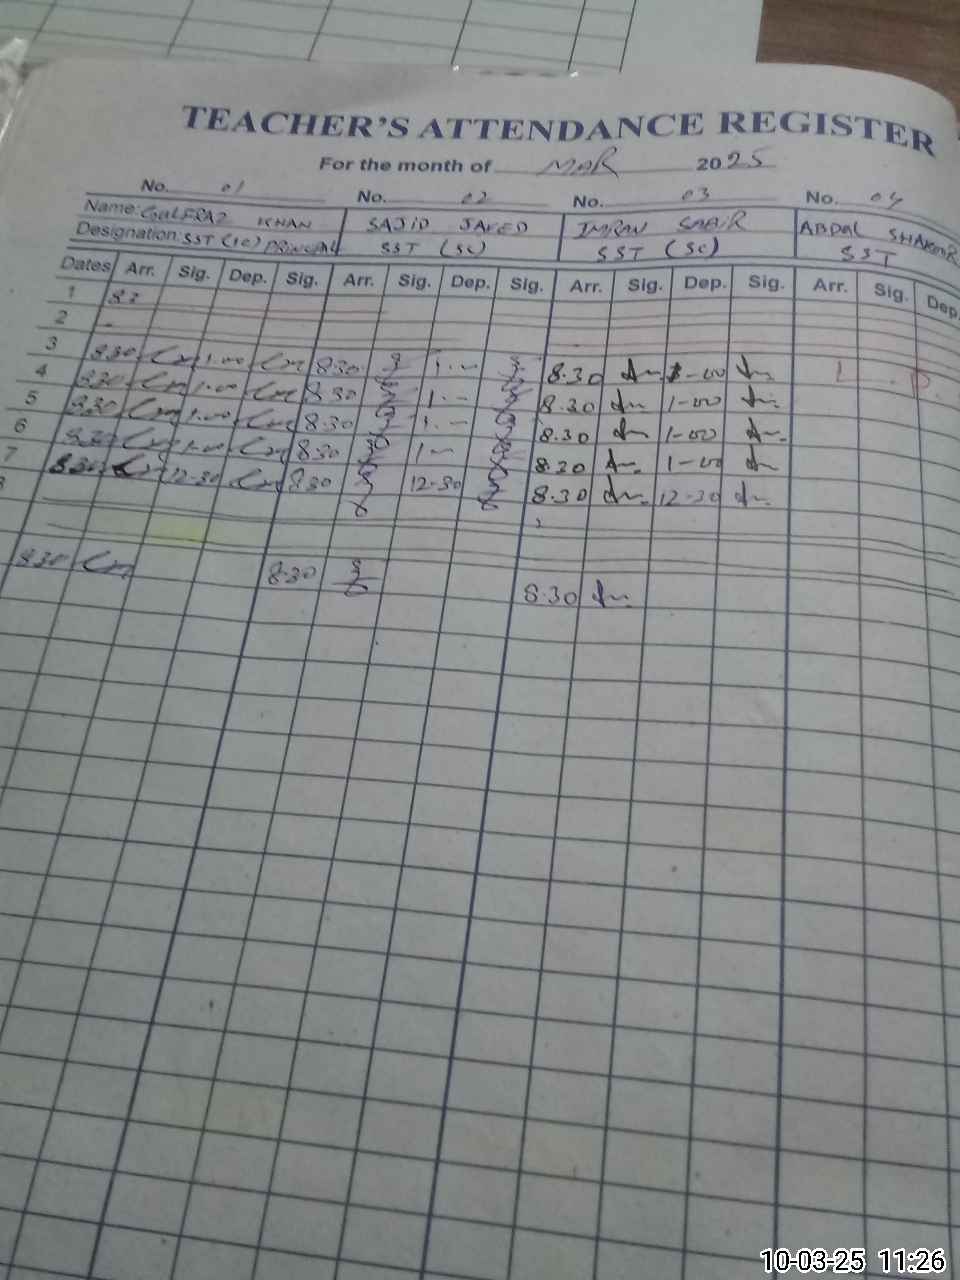 TEACHER'S ATTENDANCE REGISTER
For the month of MAR 2025
No. 01 No. 02 No. 03 No. 04
Name: GULFRAZ KHAN SAJID JAVED IMRAN SABIR ABDAL SHAKOOR
Designation: SST (SC) PRINCIPAL SST (SC) SST (SC) SST
Dates Arr. Sig. Dep. Sig. Arr. Sig. Dep. Sig. Arr. Sig. Dep. Sig. Arr. Sig. Dep.
1
2
3 8.30 1.00 8.30 1.- 8.30 1-00 L P
4 8.30 1.00 8.30 1.- 8.30 1-00
5 8.30 1.00 8.30 1.- 8.30 1-00
6 8.30 1.00 8.30 1- 8.30 1-00
7 8.30 12-30 8.30 12-30 8.30 12-30
8
8.30 8.30 8.30
10-03-25 11:26